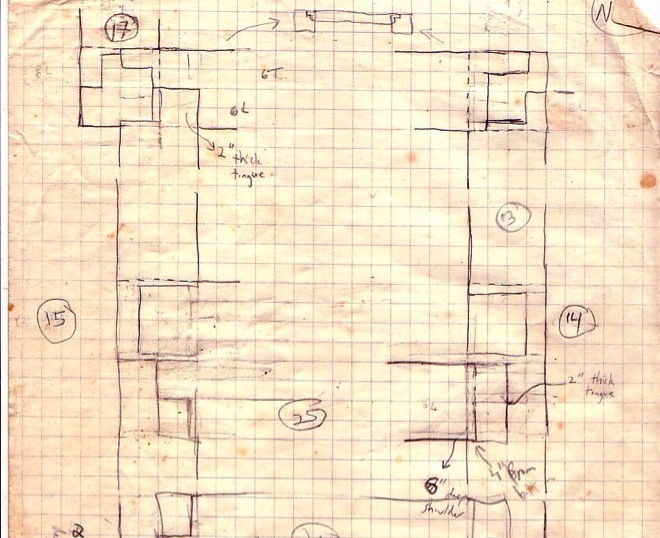 17
N
6T
6L
6L
2" thick
tongue
13
15
14
2" thick
tongue
25
6L
8" deep
shoulder
4" from
2